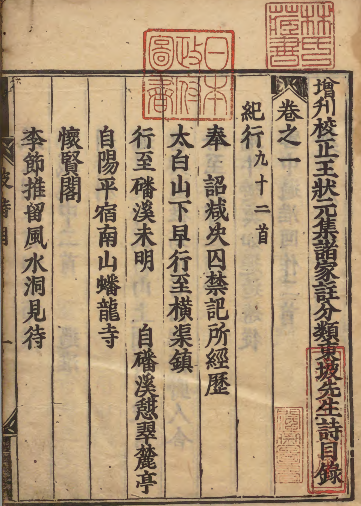 增刋校正王狀元集諸家註分類東坡先生詩目録
卷之一
紀行九十二首
奉 詔减决囚禁記所經歷
太白山下早行至横渠鎮
行至磻溪未明 自磻溪憇翠麓亭
自陽平宿南山蟠龍寺
懷賢閣
李節推留風水洞見待
日本
政府
圖書
林氏
藏書